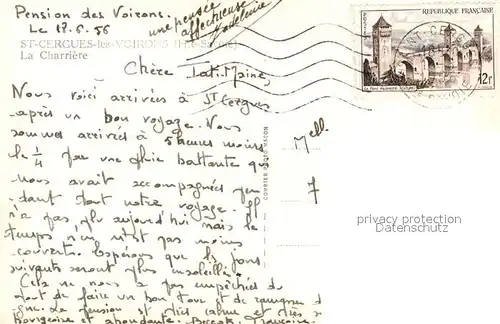 Pension des Voirons.
Le 18.6.56
une pensée
affectueuse
Madeleine
ST-CERGUES-les-VOIRONS (Hte-Savoie)
La Charrière
RÉPUBLIQUE FRANÇAISE
POSTES
12F
Chère Tati-Moine
Nous voici arrivées à St Cergues
après un bon voyage. Nous
sommes arrivés à 5 heures moins
le 1/4 par une pluie battante qui
nous avait accompagnées pen
dant tout notre voyage. Il
n'a pas plu aujourd'hui mais le
temps n'en n'est pas moins
couvert. Espérons que les jours
suivants seront plus ensoleillés.
Cela ne nous a pas empêchées de
faire un bon tour et de
La pension est très calme et très
bourgeoise et abondante. Françoise
Mell
COMBIER IMP. MACON
privacy protection
VonMorgen.de